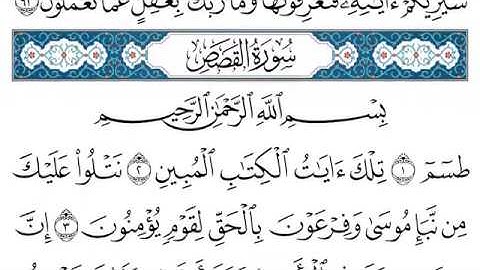 سَيُرِيكُمْ ءَايَٰتِهِۦ فَتَعْرِفُونَهَا وَمَا رَبُّكَ بِغَٰفِلٍ عَمَّا تَعْمَلُونَ ٩٣
سُورَةُ القَصَصِ
بِسْمِ ٱللَّهِ ٱلرَّحْمَٰنِ ٱلرَّحِيمِ
طسٓمٓ ١ تِلْكَ ءَايَٰتُ ٱلْكِتَٰبِ ٱلْمُبِينِ ٢ نَتْلُوا۟ عَلَيْكَ
مِن نَّبَإِ مُوسَىٰ وَفِرْعَوْنَ بِٱلْحَقِّ لِقَوْمٍ يُؤْمِنُونَ ٣ إِنَّ